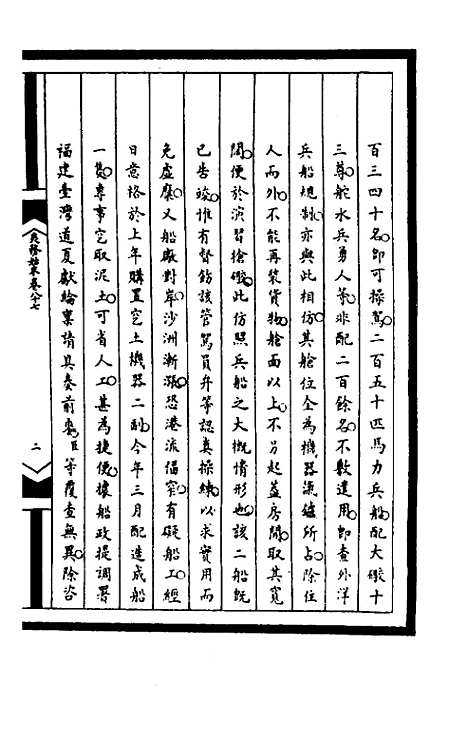 百三四十名即可操駕二百五十匹馬力兵船配大礟十
三尊舵水兵勇人等非配二百餘名不敷遣用即查外洋
兵船規制亦與此相仿其艙位全為機器滊爐所占除住
人而外不能再裝貨物艙面以上不另起蓋房間取其寬
闊便於演習槍礟此仿照兵船之大概情形也該二船既
已告竣惟有督飭該管駕員弁等認真操練以求實用而
免虛糜又船廠對岸沙洲漸漲恐港流偪窄有礙船工經
日意格於上年購置挖土機器二副今年三月配造成船
一隻專事挖取泥土可省人工甚為捷便據船政提調署
福建臺灣道夏獻綸稟請具奏前來臣等覆查無異除咨
夷務始末卷八十七
二